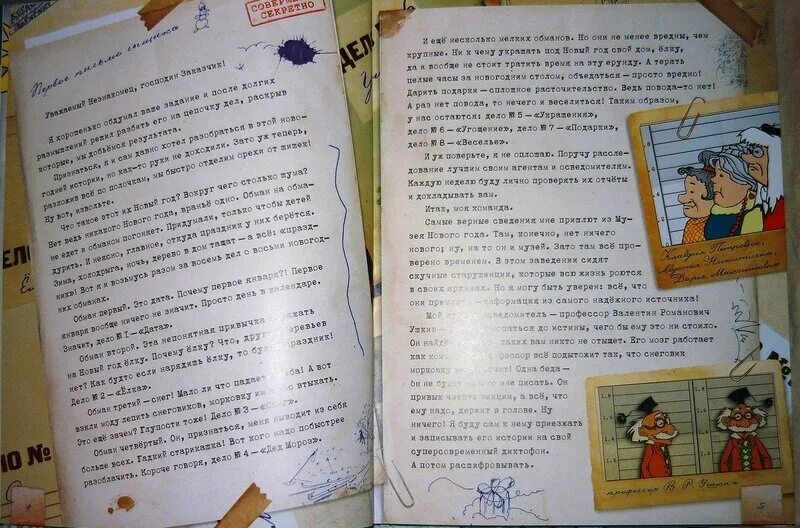 СОВЕРШ
СЕКРЕТНО
Первое письмо сыщика
Уважаемый Незнакомец, господин Заказчик!
Я хорошенько обдумал ваше задание и после долгих
размышлений решил разбить его на цепочку дел, раскрыв
которые, мы добьёмся результата.
Признаться, я и сам давно хотел разобраться в этой ново-
годней истории, но как-то руки не доходили. Зато уж теперь,
разложив всё по полочкам, мы быстро отделим орехи от шишек!
Ну вот, извольте.
Что такое этот их Новый год? Вокруг чего столько шума?
Нет ведь никакого Нового года, враньё одно. Обман на обма-
не едет и обманом погоняет. Придумали, только чтобы детей
дурить. И неясно, главное, откуда праздник у них берётся.
Зима, холодрыга, ночь, дерево в дом тащат — а всё: «празд-
ник»! Вот я и возьмусь разом за восемь дел о восьми новогод-
них обманах.
Обман первый. Это дата. Почему первое января?! Первое
января вообще ничего не значит. Просто день в календаре.
Значит, дело № 1 — «Дата».
Обман второй. Эта непонятная привычка наряжать
на Новый год ёлку. Почему ёлку? Что, других деревьев
нет? Как будто если нарядить ёлку, то будет праздник!
Дело № 2 — «Ёлка».
Обман третий — снег! Мало ли что падает с неба! А вот
взяли моду лепить снеговиков, морковку им в нос втыкать.
Это ещё зачем? Глупости тоже! Дело № 3 — «Снег».
Обман четвёртый. Он, признаться, меня выводит из себя
больше всех. Гадкий старикашка! Вот кого надо побыстрее
разоблачить. Короче говоря, дело № 4 — «Дед Мороз».
4
И ещё несколько мелких обманов. Но они не менее вредны, чем
крупные. Ни к чему украшать под Новый год свой дом, ёлку,
да и вообще не стоит тратить время на эту ерунду. А терять
целые часы за новогодним столом, объедаться — просто вредно!
Дарить подарки — сплошное расточительство. Ведь повода-то нет!
А раз нет повода, то нечего и веселиться! Таким образом,
у нас остаются: дело № 5 — «Украшения»,
дело № 6 — «Угощение», дело № 7 — «Подарки»,
дело № 8 — «Веселье».
И уж поверьте, я не оплошаю. Поручу рассле-
дование лучшим своим агентам и осведомителям.
Каждую неделю буду лично проверять их отчёты
и докладывать вам.
Итак, моя команда.
Самые верные сведения мне пришлют из Му-
зея Нового года. Там, конечно, нет ничего
нового; ну, на то он и музей. Зато там всё про-
верено временем. В этом заведении сидят
скучные старушенции, которые всю жизнь роются
в своих архивах. Но я могу быть уверен: всё, что
они пришлют — информация из самого надёжного источника!
Мой осведомитель — профессор Валентин Романович
Ушкин — копаться до истины, чего бы ему это ни стоило.
Он найдёт таких вам никто не отыщет. Его мозг работает
как ком профессор всё подытожит так, что снеговик
морковку Одна беда —
он не будет мне писать. Он
привык читать лекции, а всё, что
ему надо, держит в голове. Ну
ничего! Я буду сам к нему приезжать
и записывать его истории на свой
суперсовременный диктофон.
А потом расшифровывать.
Клавдия Петровна,
Марья Никитична,
Дарья Максимовна
профессор В. Р. Ушкин
5
ДЕЛ
ДЕЛО
ЛО №